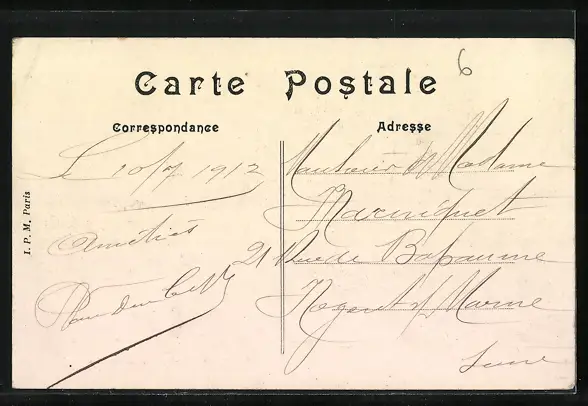 6
Carte Postale
Correspondance
Adresse
Le 10/7 1912
Amitiés
Monsieur & Madame
21 Rue de Bapaume
Nogent s/ Marne
Seine
I. P. M. Paris